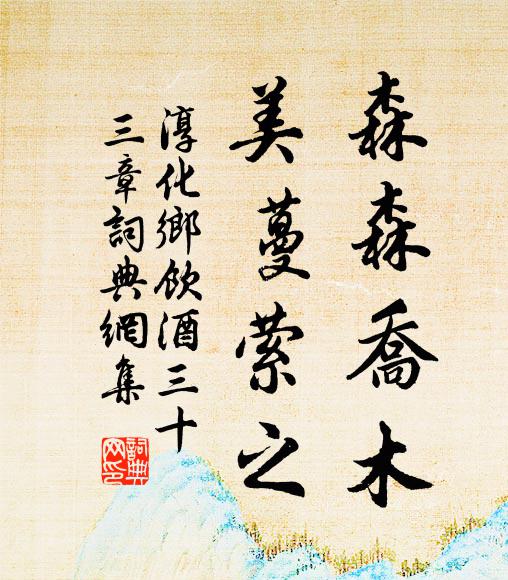 森森喬木
美蔓縈之
淳化鄉飲酒三十
三章詞典網集
詞典
网印